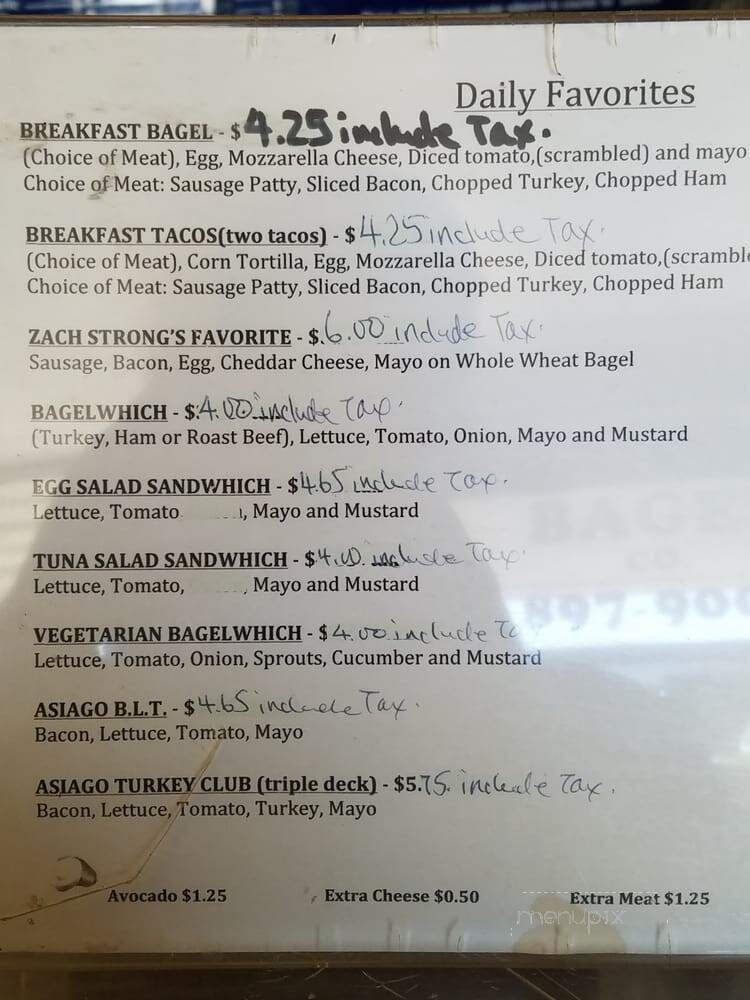 Daily Favorites
BREAKFAST BAGEL - $4.25 include Tax.
(Choice of Meat), Egg, Mozzarella Cheese, Diced tomato,(scrambled) and mayo
Choice of Meat: Sausage Patty, Sliced Bacon, Chopped Turkey, Chopped Ham
BREAKFAST TACOS(two tacos) - $4.25 include Tax.
(Choice of Meat), Corn Tortilla, Egg, Mozzarella Cheese, Diced tomato,(scramble
Choice of Meat: Sausage Patty, Sliced Bacon, Chopped Turkey, Chopped Ham
ZACH STRONG'S FAVORITE - $.6.00 include Tax.
Sausage, Bacon, Egg, Cheddar Cheese, Mayo on Whole Wheat Bagel
BAGELWHICH - $.4.00 include Tax.
(Turkey, Ham or Roast Beef), Lettuce, Tomato, Onion, Mayo and Mustard
EGG SALAD SANDWHICH - $4.65 include Tax.
Lettuce, Tomato , Mayo and Mustard
TUNA SALAD SANDWHICH - $4.00. include Tax.
Lettuce, Tomato, , Mayo and Mustard
VEGETARIAN BAGELWHICH - $4.00 include Ta
Lettuce, Tomato, Onion, Sprouts, Cucumber and Mustard
ASIAGO B.L.T. - $4.65 include Tax.
Bacon, Lettuce, Tomato, Mayo
ASIAGO TURKEY CLUB (triple deck) - $5.75. include Tax.
Bacon, Lettuce, Tomato, Turkey, Mayo
Avocado $1.25 Extra Cheese $0.50 Extra Meat $1.25
menupix